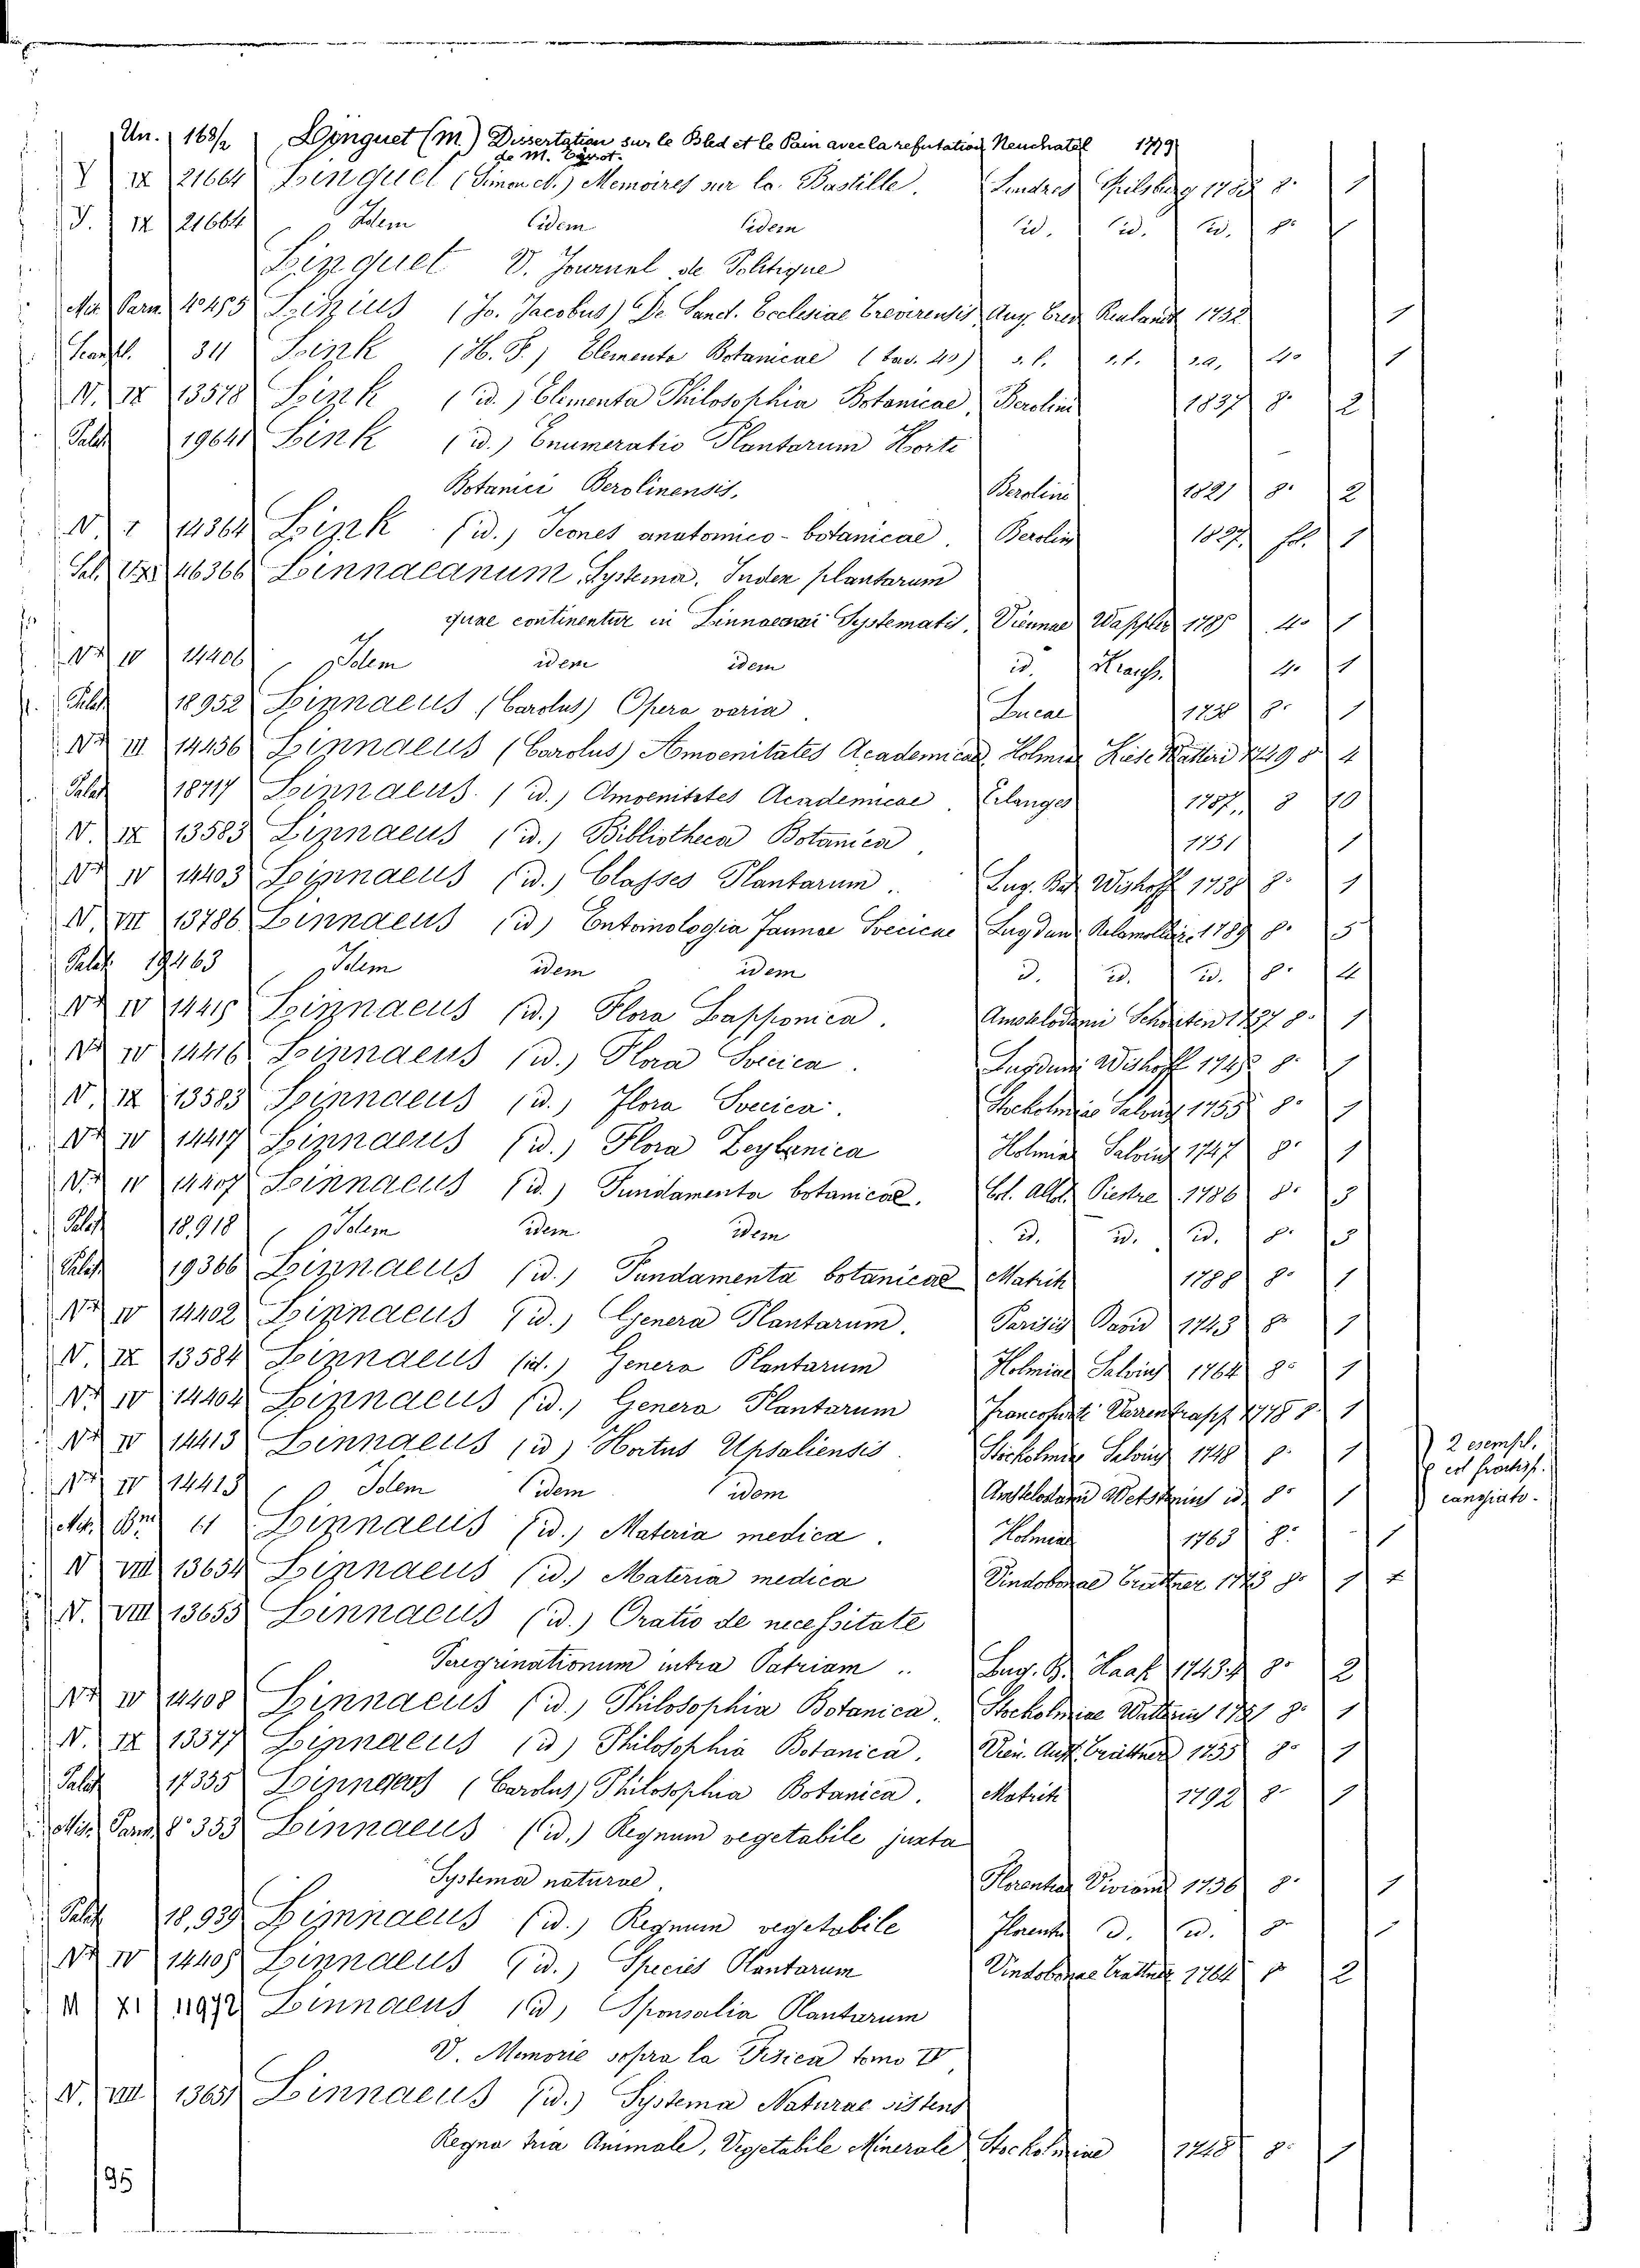 Un. 168/2 Linguet (M.) Dissertation sur le Bled et le Pain avec la refutation Neuchatel 1779
de M.
V IX 21664 Linguel (Simon N.) Memoires sur la Bastille. Londres Spilsberg 1783 8º 1
V. IX 21664 Idem idem idem id. id. id. 8º
Linguet V. Journal de Politique
Mis Parn. 4º 495 Linius (Jo. Jacobus) De Sanct. Ecclesiae Trevirensis Aug. Trev. Reulandt 1732 1
Scanf. 311 Link (H. F.) Elementa Botanicae (tav. 40) s.l. s.t. s.a. 4º 1
N. IX 13578 Link (id.) Elementa Philosophia Botanicae, Berolini 1837 8º 2
Palat 19641 Link (id.) Enumeratio Plantarum Horti
Botanici Berolinensis, Berolini 1821 8º 2
N 1 14364 Link (id.) Icones anatomico-botanicae. Berolin 1837 fol. 1
Sal. 46366 Linnaeanum Systema. Index plantarum
quae continentur in Linnaeani Systematis, Viennae Wappler 1785 4º 1
Nª IV 14406 Idem idem idem id. Krauss. 4º 1
Palat 18952 Linnaeus (Carolus) Opera varia. Lucae 1758 8º 1
Nª III 14456 Linnaeus (Carolus) Amoenitates Academicae, Holmiae 1749 8 4
Palat 18717 Linnaeus. (id.) Amoenitates Academicae. Erlangae 1787. 8 10
N. IX 13583 Linnaeus (id.) Bibliotheca Botanica. 1751 1
Nª IV 14403 Linnaeus (id.) Classes Plantarum. Lug. Bat. Wishoff 1738 8º 1
N. VII 13786 Linnaeus (id) Entomologia Faunae Svecicae Lugdun. Delamolliere 1789 8º 5
Palat. 19463 Idem idem idem id. id. id. 8º 4
Nª IV 14415 Linnaeus (id.) Flora Lapponica. Amstelodami Schouten 1737 8º 1
Nª IV 14416 Linnaeus (id.) Flora Svecica. Lugduni Wishoff 1745 8º 1
N. IX 13583 Linnaeus (id.) Flora Svecica. Stockolmiae Salvius 1755 8º 1
Nª IV 14417 Linnaeus (id.) Flora Zeylanica Holmiae Salvius 1747 8º 1
Nª IV 14407 Linnaeus (id.) Fundamenta botanicae. Col. Allob. Piestre 1786 8º 3
Palat 18,918 Idem idem idem id. id. id. 8º 3
Palat 19366 Linnaeus (id.) Fundamenta botanicae Matrit 1788 8º 1
Nª IV 14402 Linnaeus (id.) Genera Plantarum. Parisiis David 1743 8º 1
N. IX 13584 Linnaeus (id.) Genera Plantarum Holmiae Salvius 1764 8º 1
Nª IV 14404 Linnaeus (id.) Genera Plantarum Francofurti Varrentrapp 1778 8. 1
Nª IV 14413 Linnaeus (id) Hortus Upsaliensis Stockolmiae Salvius 1748 8. 1
Nª IV 14418 Idem idem idem Amstelodami Wetstenius id 8º 1
2 esempl.
ed frontisp.
cangiato.
Mis. Bni 61 Linnaeus (id.) Materia medica. Holmiae 1763 8º 1
N VIII 13654 Linnaeus (id.) Materia medica Vindobonae Trattner 1773 8º 1
N. VIII 13655 Linnaeus (id.) Oratio de necessitate
Peregrinationum intra Patriam .. Lug. B. Haak 1743. 8º 2
Nª IV 14408 Linnaeus (id.) Philosophia Botanica. Stockolmiae 1751 8º 1
N. IX 13577 Linnaeus (id) Philosophia Botanica. Vien. Aust. Trattner 1755 8º 1
Palat 17355 Linnaeus (Carolus) Philosophia Botanica. Matrit 1792 8º 1
Mis. Parm 8º 353 Linnaeus (id.) Regnum vegetabile juxta
Systema naturae, Florentiae Viviani 1736 8º 1
Palat 18,939 Linnaeus (id.) Regnum vegetabile Florentiae id. id. 8º 1
Nª IV 14405 Linnaeus (id.) Species Plantarum Vindobonae Trattner 1764 8º 2
M XI 11972 Linnaeus (id) Sponsalia Plantarum
V. Memorie sopra la Fisica tomo IV
N. VIII 13651 Linnaeus (id.) Systema Naturae sistens
Regna tria Animale, Vegetabile Minerale Stockolmiae 1748 8º 1
195